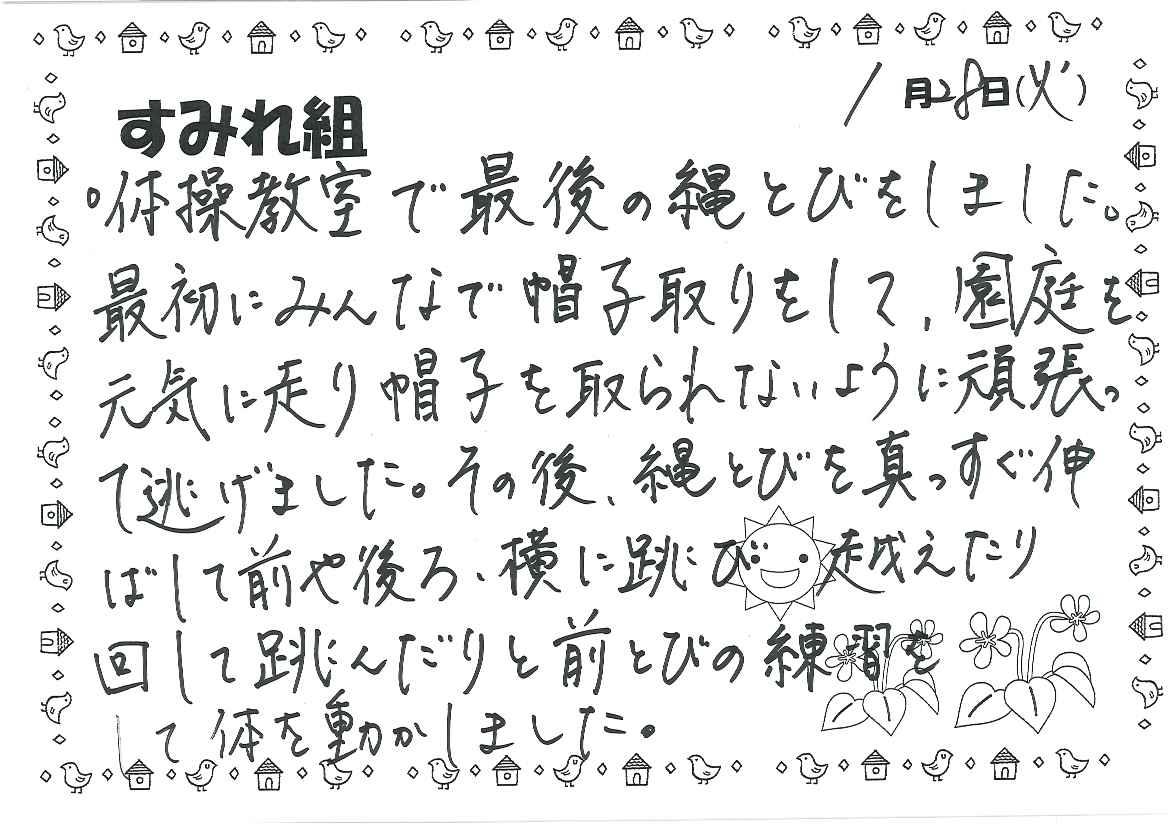 1月28日(火)
すみれ組
。体操教室で最後の縄とびをしました。
最初にみんなで帽子取りをして、園庭を
元気に走り帽子を取られないように頑張っ
て逃げました。その後、縄とびを真っすぐ伸
ばして前や後ろ、横に跳び越えたり
回して跳んだりと前とびの練習を
して体を動かしました。